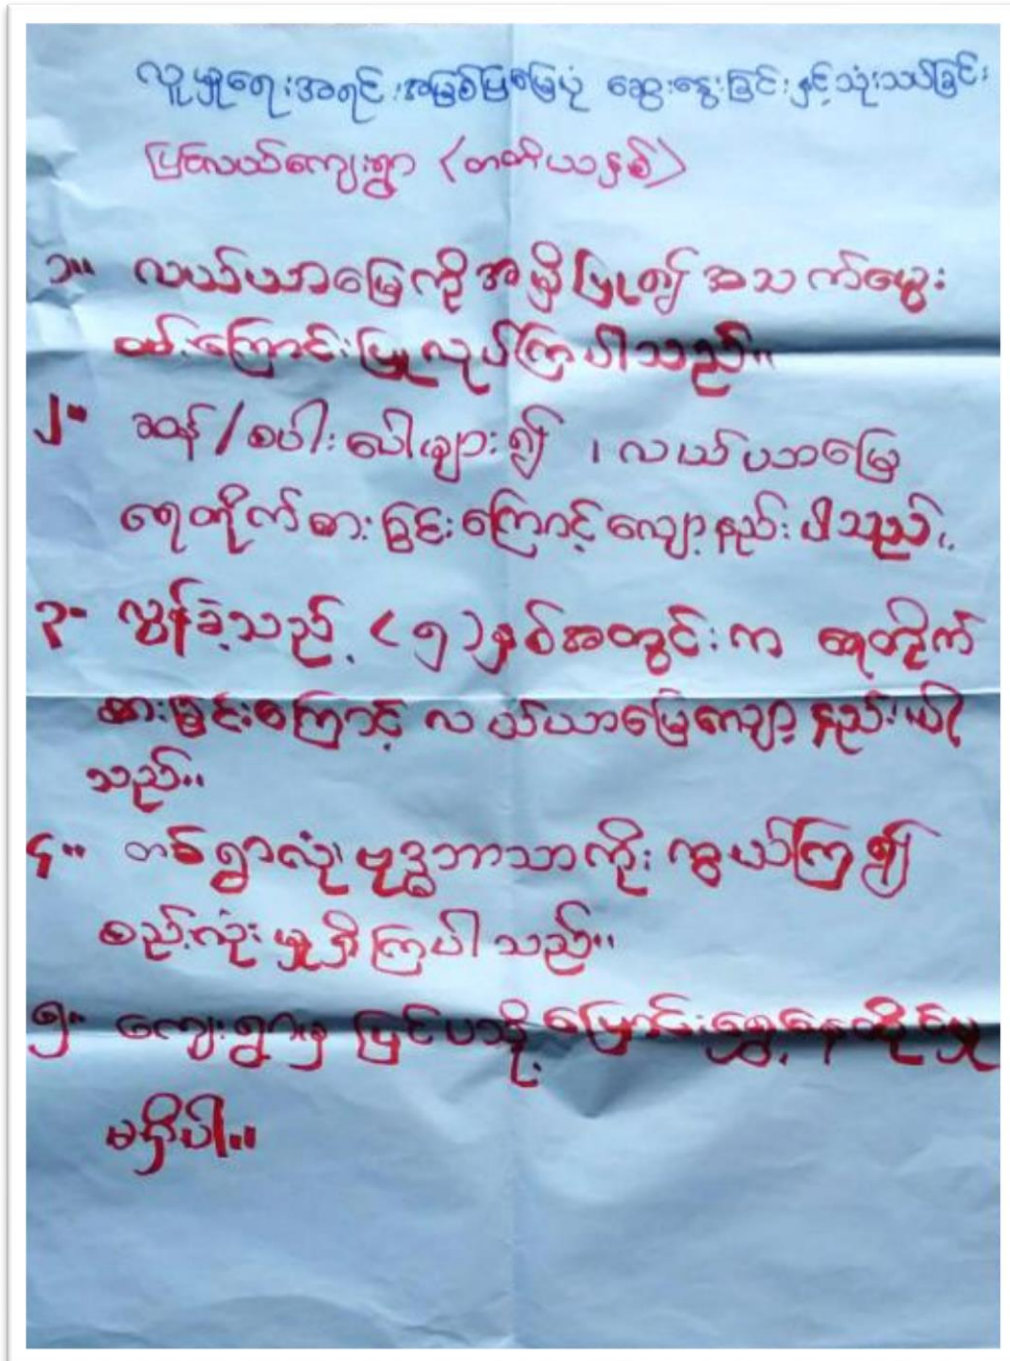 လူမှုရေးအရင်းအမြစ်ပြမြေပုံ ဆွေးနွေးခြင်းနှင့်သုံးသပ်ခြင်း
ပြင်လယ်ကျေးရွာ (တတိယနှစ်)
၁။ လယ်ယာမြေကိုအမှီပြု၍ အသက်မွေး
ဝမ်းကြောင်းပြုလုပ်ကြပါသည်။
၂။ ဆန်/စပါးပေါများ၍ ၊ လယ်ယာမြေ
ရေတိုက်စားခြင်းကြောင့်လျော့နည်းပါသည်။
၃။ လွန်ခဲ့သည့် (၅)နှစ်အတွင်းက ရေတိုက်
စားခြင်းကြောင့် လယ်ယာမြေလျော့နည်းပါ
သည်။
၄။ တစ်ရွာလုံး ဗုဒ္ဓဘာသာကိုးကွယ်ကြ၍
စည်းလုံးမှုရှိကြပါသည်။
၅။ ကျေးရွာမှ ပြင်ပသို့ ပြောင်းရွှေ့နေထိုင်မှု
မရှိပါ။